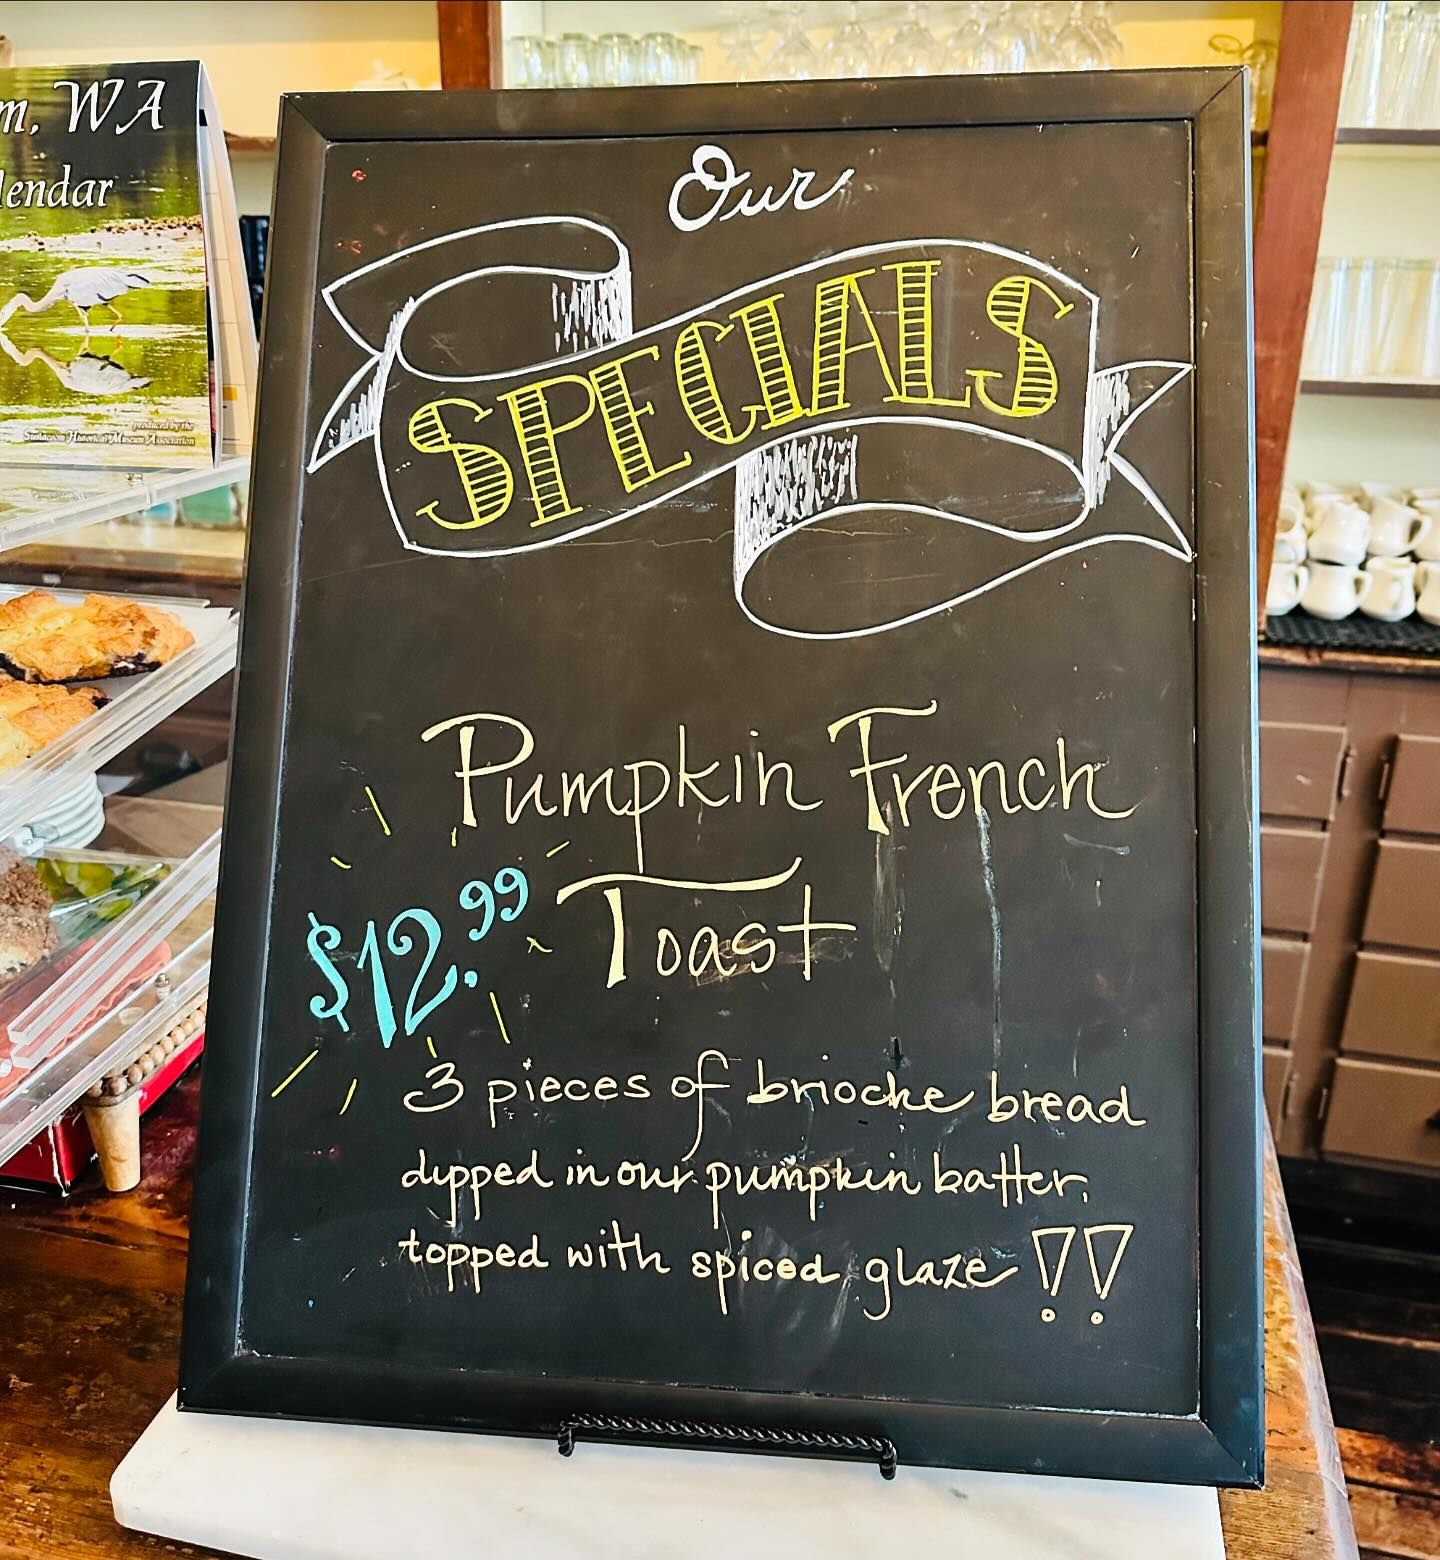 m, WA
lendar
produced by the
Steilacoom Historical Museum Association
Our
SPECIALS
Pumpkin French
Toast
$12.99
3 pieces of brioche bread
dipped in our pumpkin batter,
topped with spiced glaze!!